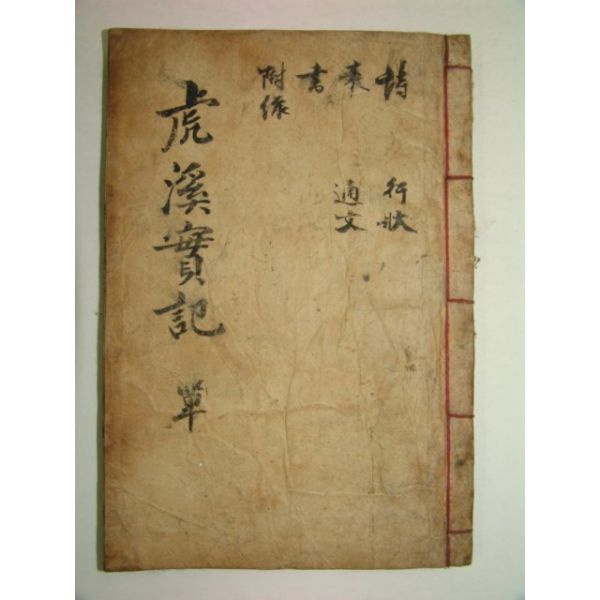 詩 行狀
通文
書
附錄
虎溪實記 單